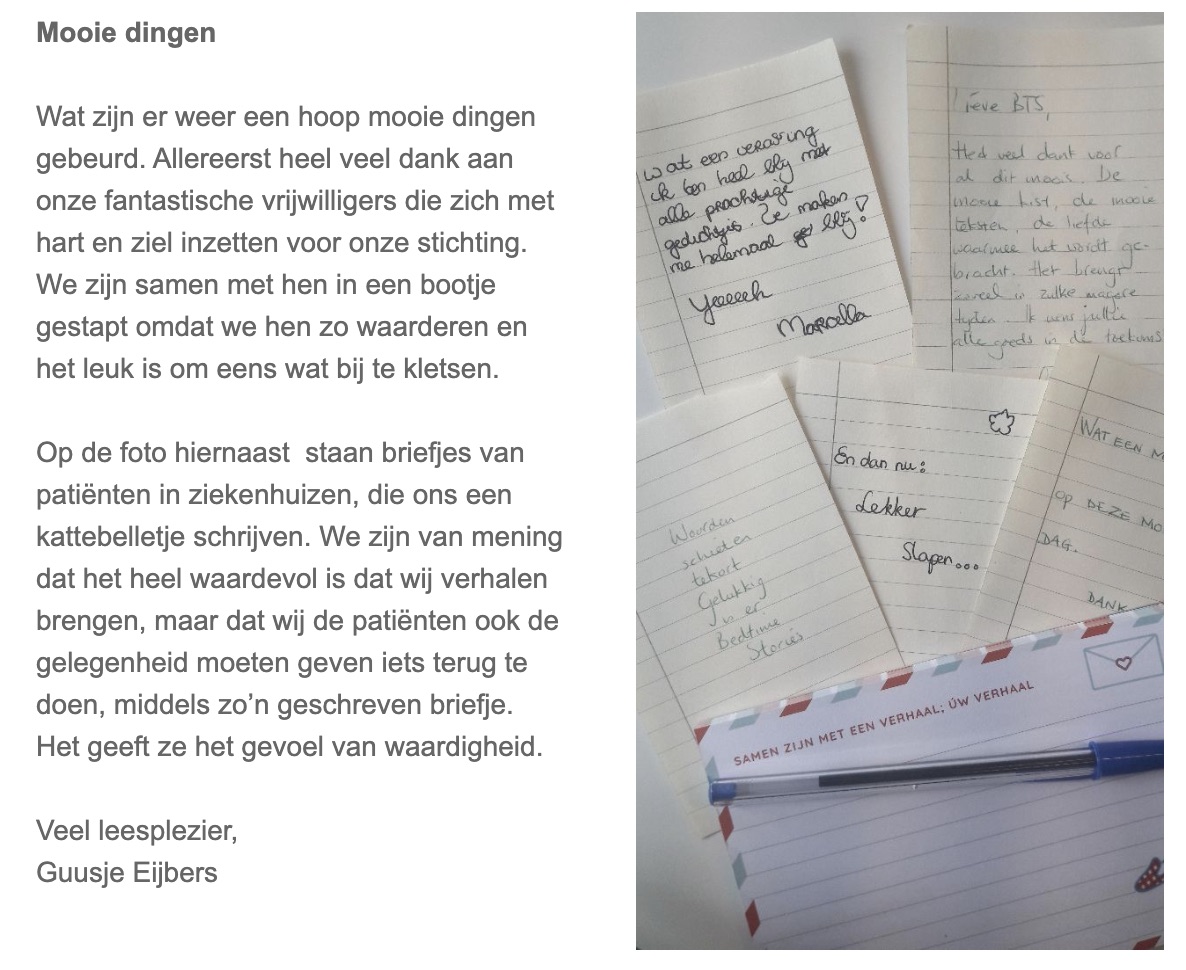 Mooie dingen
Wat zijn er weer een hoop mooie dingen
gebeurd. Allereerst heel veel dank aan
onze fantastische vrijwilligers die zich met
hart en ziel inzetten voor onze stichting.
We zijn samen met hen in een bootje
gestapt omdat we hen zo waarderen en
het leuk is om eens wat bij te kletsen.
Op de foto hiernaast staan briefjes van
patiënten in ziekenhuizen, die ons een
kattebelletje schrijven. We zijn van mening
dat het heel waardevol is dat wij verhalen
brengen, maar dat wij de patiënten ook de
gelegenheid moeten geven iets terug te
doen, middels zo’n geschreven briefje.
Het geeft ze het gevoel van waardigheid.
Veel leesplezier,
Guusje Eijbers
wat een verassing
ik ben heel blij met
alle prachtige
gedichtjes. Ze maken
me helemaal blij!
Yeeeeh
Marcella
Lieve BTS,
Heel veel dank voor
al dit moois. De
mooie kist, de mooie
teksten, de liefde
waarmee het wordt ge-
bracht. Het brengt
zoveel in zulke magere
tyden. Ik wens jullie
alle goeds in de toekomst
Woorden
schieten
tekort
Gelukkig
is er
Bedtime
Stories
En dan nu:
Lekker
Slapen...
WAT EEN M
OP DEZE MO
DAG.
DANK
SAMEN ZIJN MET EEN VERHAAL; ÚW VERHAAL